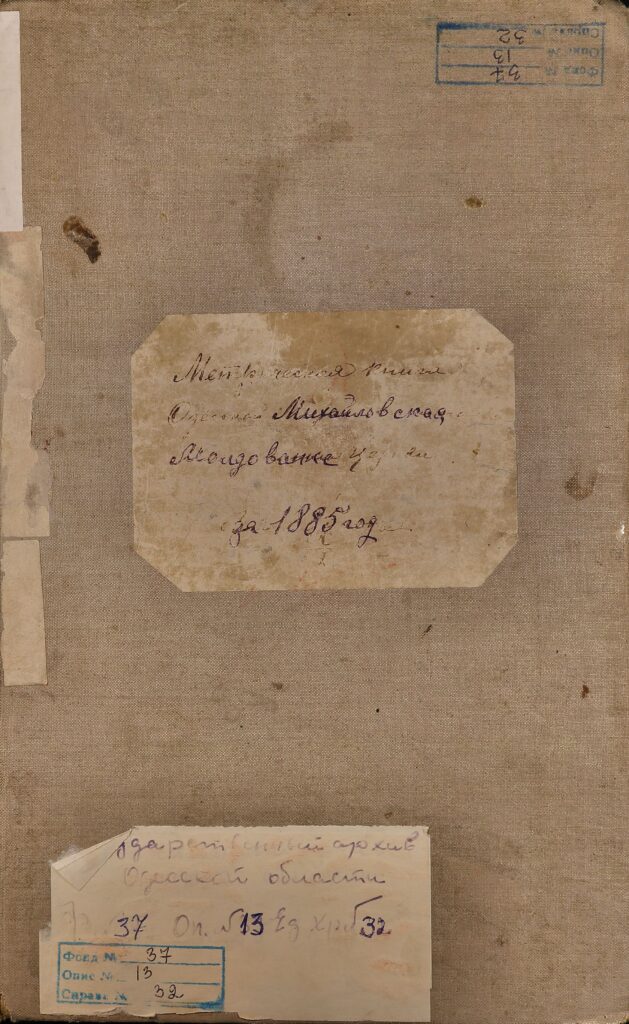 Фонд № 37
Опис № 13
Справа № 32
Метрическая книга
Одесской Михайловская
Молдованке церкви
за 1885 год
ударственный архив
Одесской области
37 Оп. №13 Ед хр №32
Фонд № 37
Опис № 13
Справа № 32